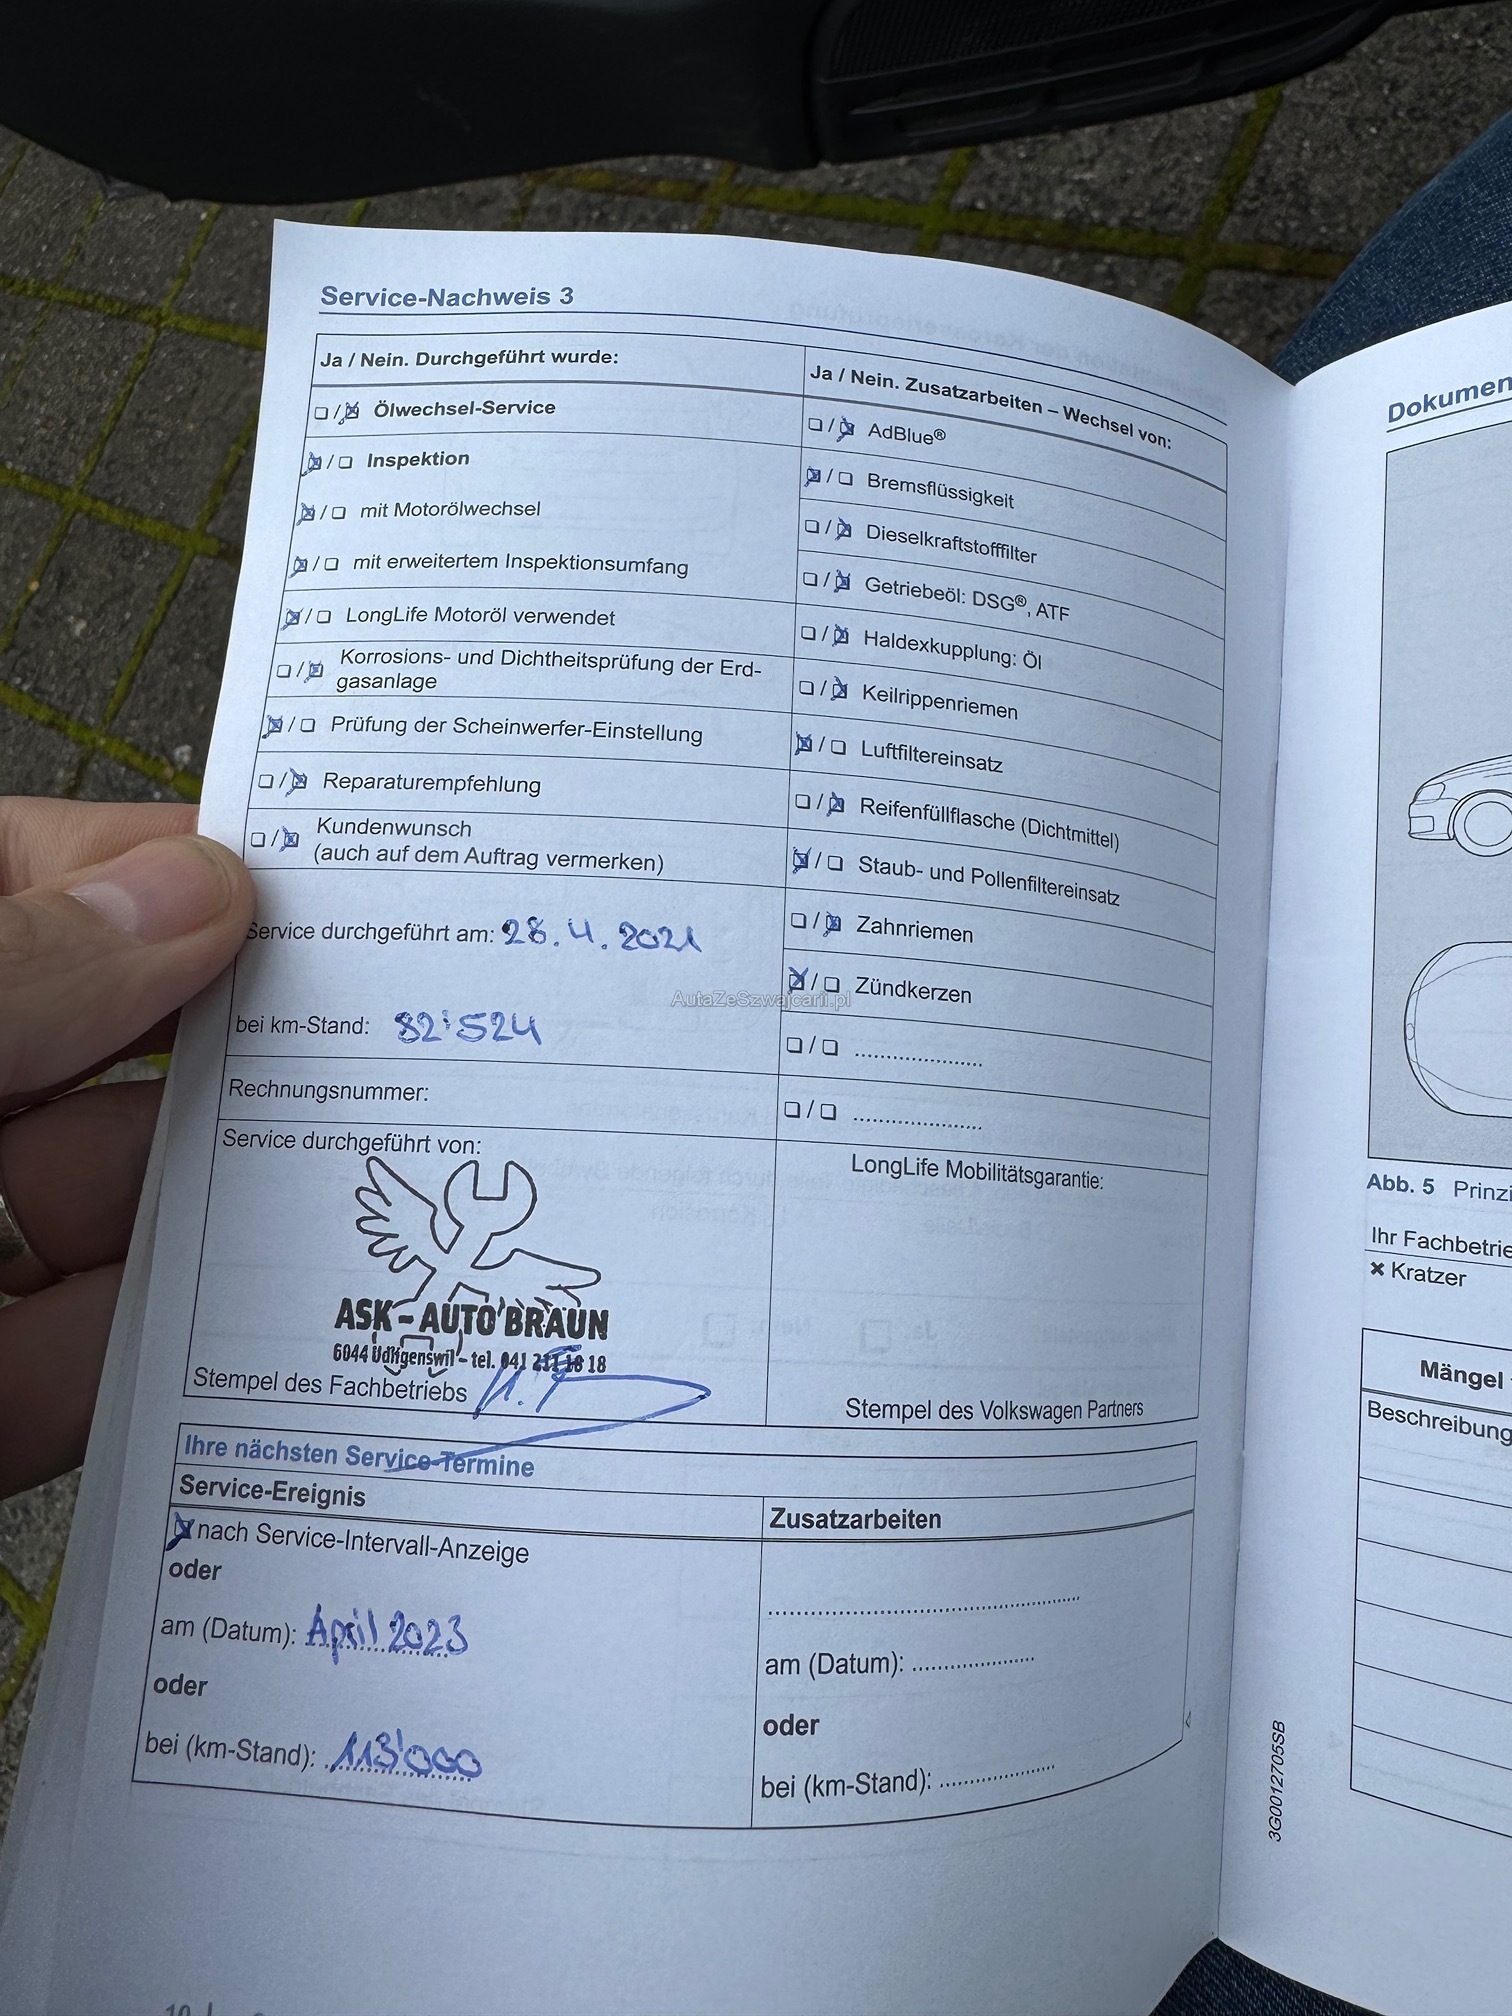 Service-Nachweis 3
Ja / Nein. Durchgeführt wurde:
☐ / ☒ Ölwechsel-Service
☒ / ☐ Inspektion
☒ / ☐ mit Motorölwechsel
☒ / ☐ mit erweitertem Inspektionsumfang
☒ / ☐ LongLife Motoröl verwendet
☐ / ☒ Korrosions- und Dichtheitsprüfung der Erd-
gasanlage
☒ / ☐ Prüfung der Scheinwerfer-Einstellung
☐ / ☒ Reparaturempfehlung
☐ / ☒ Kundenwunsch
(auch auf dem Auftrag vermerken)
Service durchgeführt am: 28.4.2021
bei km-Stand: 82'524
Rechnungsnummer:
Service durchgeführt von:
ASK-AUTO BRAUN
6044 Udligenswil - tel. 041 211 18 18
Stempel des Fachbetriebs
Ja / Nein. Zusatzarbeiten – Wechsel von:
☐ / ☒ AdBlue®
☒ / ☐ Bremsflüssigkeit
☐ / ☒ Dieselkraftstofffilter
☐ / ☒ Getriebeöl: DSG®, ATF
☐ / ☒ Haldexkupplung: Öl
☐ / ☒ Keilrippenriemen
☒ / ☐ Luftfiltereinsatz
☐ / ☒ Reifenfüllflasche (Dichtmittel)
☒ / ☐ Staub- und Pollenfiltereinsatz
☐ / ☒ Zahnriemen
☒ / ☐ Zündkerzen
☐ / ☐ ....................
☐ / ☐ ....................
LongLife Mobilitätsgarantie:
Stempel des Volkswagen Partners
AutaZeSzwajcarii.pl
Ihre nächsten Service-Termine
Service-Ereignis
☒ nach Service-Intervall-Anzeige
oder
am (Datum): April 2023
oder
bei (km-Stand): 113'000
Zusatzarbeiten
..................................................
am (Datum): ....................
oder
bei (km-Stand): ....................
3G0012705SB
Dokumen
Abb. 5 Prinzi
Ihr Fachbetrie
✖ Kratzer
Mängel
Beschreibung